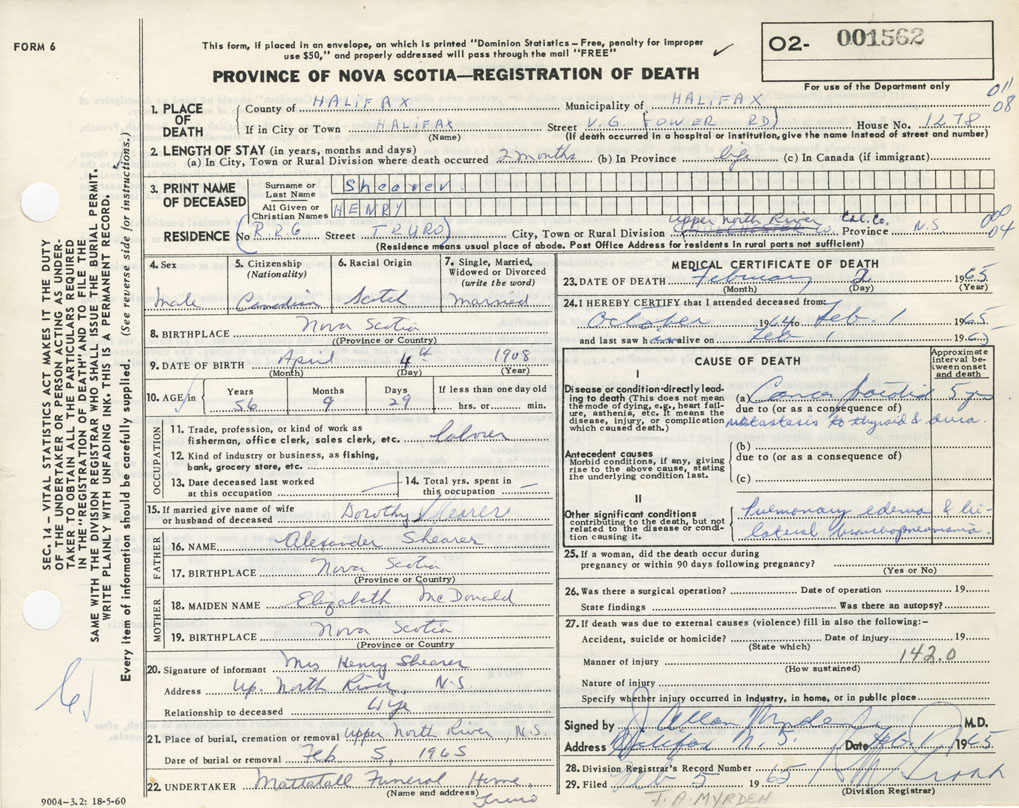 FORM 6
This form, if placed in an envelope, on which is printed "Dominion Statistics – Free, penalty for improper
use $50," and properly addressed will pass through the mail "FREE"
O2- 001562
For use of the Department only
PROVINCE OF NOVA SCOTIA—REGISTRATION OF DEATH
011
08
1. PLACE OF DEATH
County of HALIFAX Municipality of HALIFAX
If in City or Town HALIFAX Street V.G. (TOWER RD) House No. 1278
(Name) (If death occurred in a hospital or institution, give the name instead of street and number)
2. LENGTH OF STAY (in years, months and days)
(a) In City, Town or Rural Division where death occurred 2 months (b) In Province life (c) In Canada (if immigrant)
3. PRINT NAME OF DECEASED
Surname or Last Name Shearer
All Given or Christian Names HENRY
RESIDENCE (No R.R.6 Street TRURO) City, Town or Rural Division Upper North River Col. Co. Province N.S
(Residence means usual place of abode. Post Office Address for residents in rural parts not sufficient)
04
4. Sex
5. Citizenship (Nationality)
6. Racial Origin
7. Single, Married, Widowed or Divorced (write the word)
male Canadian Scotch Married
8. BIRTHPLACE Nova Scotia
(Province or Country)
9. DATE OF BIRTH April 4th 1908
(Month) (Day) (Year)
10. AGE in Years Months Days If less than one day old
56 9 29 hrs. or min.
OCCUPATION
11. Trade, profession, or kind of work as
fisherman, office clerk, sales clerk, etc. labover
12. Kind of industry or business, as fishing,
bank, grocery store, etc.
13. Date deceased last worked
at this occupation
14. Total yrs. spent in
this occupation
15. If married give name of wife
or husband of deceased Dorothy Shearer
FATHER
16. NAME Alexander Shearer
17. BIRTHPLACE Nova Scotia
(Province or Country)
MOTHER
18. MAIDEN NAME Elizabeth McDonald
19. BIRTHPLACE Nova Scotia
(Province or Country)
20. Signature of informant Mrs Henry Shearer
Address Up. North River, N.S.
Relationship to deceased
21. Place of burial, cremation or removal Upper North River N.S.
Date of burial or removal Feb 5, 1965
22. UNDERTAKER Mattatall Funeral Home,
(Name and address) Truro
MEDICAL CERTIFICATE OF DEATH
23. DATE OF DEATH February 2 1965
(Month) (Day) (Year)
24. I HEREBY CERTIFY that I attended deceased from:
October 1964 to Feb. 1 1965
and last saw h alive on Feb 1 196
CAUSE OF DEATH
Approximate interval between onset and death
I
Disease or condition directly leading to death (This does not mean the mode of dying, e.g., heart failure, asthenia, etc. It means the disease, injury, or complication which caused death.)
(a) Cancer parotid 5 yrs
due to (or as a consequence of)
metastasis to thyroid & dura.
Antecedent causes
Morbid conditions, if any, giving rise to the above cause, stating the underlying condition last.
(b)
due to (or as a consequence of)
(c)
II
Other significant conditions
contributing to the death, but not related to the disease or condition causing it.
Pulmonary edema & bi-
lateral bronchopneumonia
25. If a woman, did the death occur during
pregnancy or within 90 days following pregnancy?
(Yes or No)
26. Was there a surgical operation? Date of operation 19
State findings Was there an autopsy?
27. If death was due to external causes (violence) fill in also the following:-
Accident, suicide or homicide? Date of injury 19
(State which)
142.0
Manner of injury
(How sustained)
Nature of injury
Specify whether injury occurred in industry, in home, or in public place
Signed by J Allan Myrden M.D.
Address Halifax N.S. Date Feb. 1965
28. Division Registrar's Record Number
29. Filed 5 1965
(Division Registrar)
J.A. MYRDEN
SEC. 14 – VITAL STATISTICS ACT MAKES IT THE DUTY
OF THE UNDERTAKER OR PERSON ACTING AS UNDER-
TAKER TO OBTAIN ALL THE PARTICULARS REQUIRED
IN THE "REGISTRATION OF DEATH" AND TO FILE THE
SAME WITH THE DIVISION REGISTRAR WHO SHALL ISSUE THE BURIAL PERMIT.
WRITE PLAINLY WITH UNFADING INK. THIS IS A PERMANENT RECORD.
Every item of information should be carefully supplied. (See reverse side for instructions.)
9004–3.2: 18-5-60